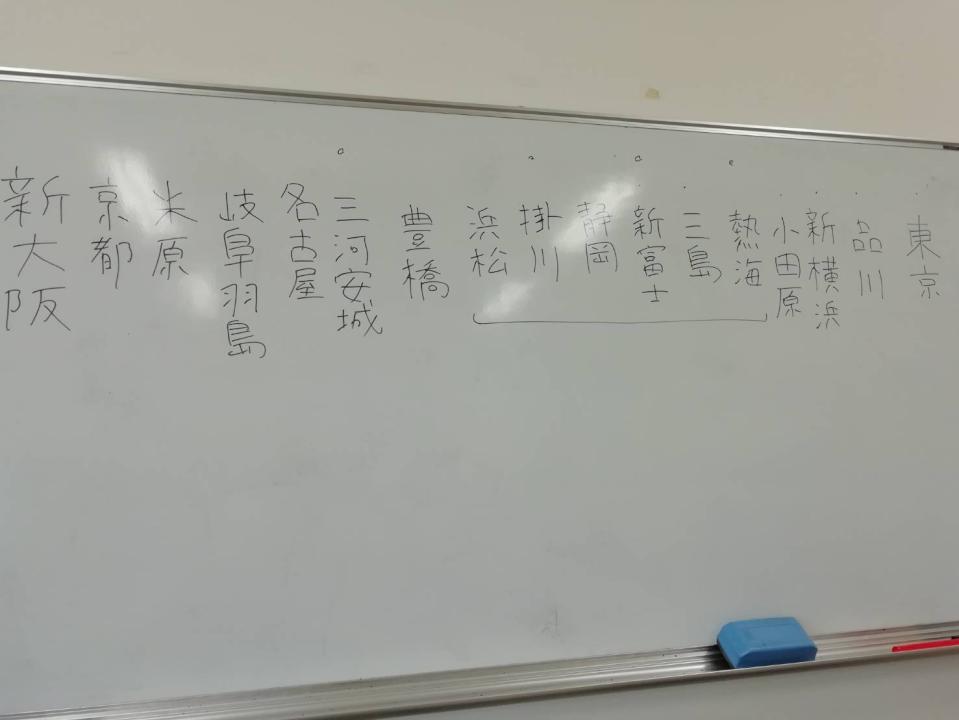 東京
品川
新横浜
小田原
熱海
三島
新富士
静岡
掛川
浜松
豊橋
三河安城
名古屋
岐阜羽島
米原
京都
新大阪